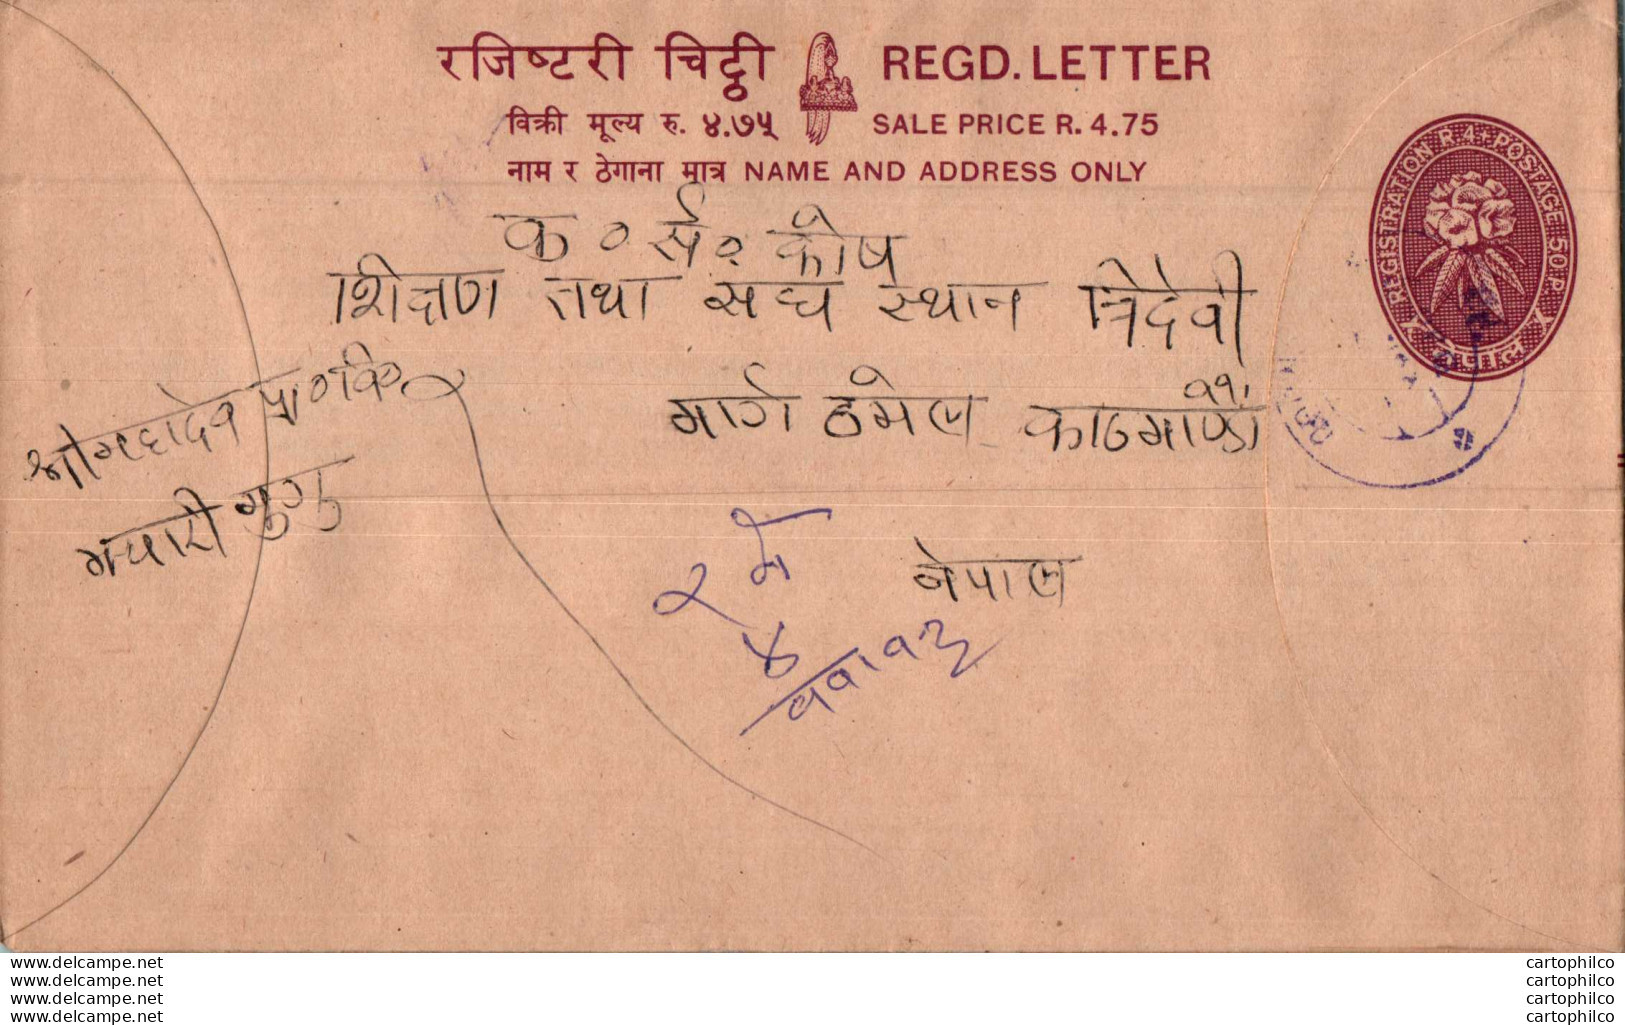 रजिष्टरी चिट्ठी REGD. LETTER
विक्री मूल्य रु. ४.७५ SALE PRICE R. 4.75
नाम र ठेगाना मात्र NAME AND ADDRESS ONLY
REGISTRATION R.4+POSTAGE 50 P.
नेपाल
क० सं० कोष
शिक्षण तथा सघ स्थान त्रिदेवी
मार्ग ठमेल काठमाण्डौ
नेपाल
श्री महादेव प्रा० वि०
मचारी गुगु
www.delcampe.net cartophilco
www.delcampe.net cartophilco
www.delcampe.net cartophilco
www.delcampe.net cartophilco